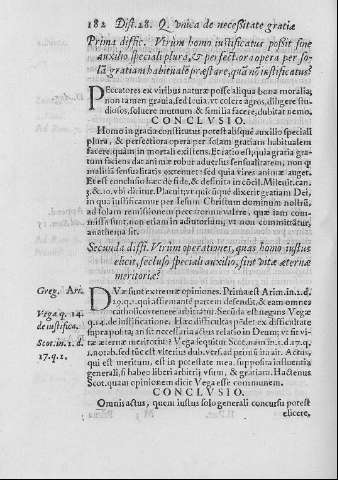 182 Dist. 28. Q. vnica de necessitate gratiæ
Prima diffic. Virùm homo iustificatus possit sine
auxilio speciali plura, & perfectiora opera per so-
lã gratiam habitualẽ præstare, quã nõ iustificatus?
PEccatores ex viribus naturæ posse aliqua bona moralia;
non tamen grauia, sed leuia, vt colere agros, diligere stu-
diosos, soluere mutuum & similia facere, dubitat nemo,
CONCLVSIO.
Homo in gratia constitutus potest absque auxilio speciali
plura, & perfectiora opera per solam gratiam habitualem
facere, quàm in mortali existens. Et ratio est, quia gratia gra-
tum faciens dat animæ robur aduersus sensualitatem, non q
malitia sensualitatis extremet: sed quia vires animæ auget.
Et est conclusio hæc de fide, & definita in cõcil. Mileuit. can.
3. & 10. vbi dicitur, Placuit, vt quisquis dixerit gratiam Dei,
in qua iustificamur per Iesum Christum dominum nostrũ,
ad solam remissionem peccatorum valere, quæ iam com-
missa sunt, non etiam ad adiutoriũ, vt non committantur,
anathema sit.
Secunda diffi. Virùm operationes, quas homo iustus
elicit, secluso speciali auxilio, sint vitæ æternæ
meritoriæ?
Greg. Ari.
Vega q. 14.
de iustifica.
Scot. in. 1. d.
17. q. 1.
DVæ sunt extremæ opiniones. Prima est Arim. in 2. d.
29. q. 1. qui affirmantẽ partem defendit, & eam omnes
catholicos tenere arbitratur. Secũda est negans Vegæ
q. 14. de iustificatione. Hæc difficultas pẽdet ex difficultate
supra posita; an sit necessaria actus relatio in Deum; vt sit vi-
tæ æternæ meritorius? Vega sequitur Scot. nam in 1. d. 17. q.
1. not ab. sed tũc est vlterius dub. vers. ad primũ in aït. Actus,
qui est meritum, est in potestate mea, supposita influentia
generali, si habeo liberi arbitrij vsum, & gratiam. Hactenus
Scot. quam opinionem dicit Vega esse communem.
CONCLVSIO.
Omnis actus, quem iustus solo generali concursu potest
elicere,